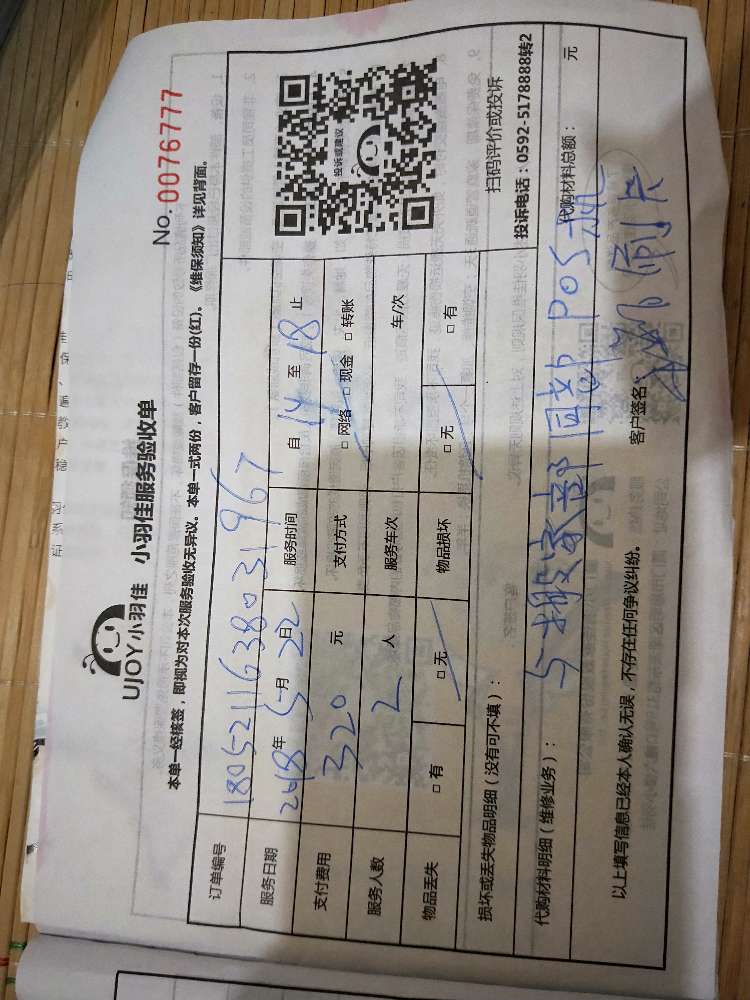 UJOY小羽佳 小羽佳服务验收单
No. 0076777
本单一经核签，即视为对本次服务验收无异议。本单一式两份，客户留存一份(红)。《维保须知》详见背面。
订单编号 180521163803 1967
服务日期 2018年5月22日 服务时间 自 14 至 18 止
支付费用 320 元 支付方式 □ 网络 □ 现金 □ 转账
服务人数 2 人 服务车次 车/次
物品丢失 □ 有 □ 无 物品损坏 □ 无 □ 有
投诉或建议
扫码评价或投诉
投诉电话：0592-5178888转2
损坏或丢失物品明细（没有可不填）：
代购材料明细（维修业务）： 代购材料总额： 元
与搬家部同站POS机
刷卡
以上填写信息已经本人确认无误，不存在任何争议纠纷。 客户签名：